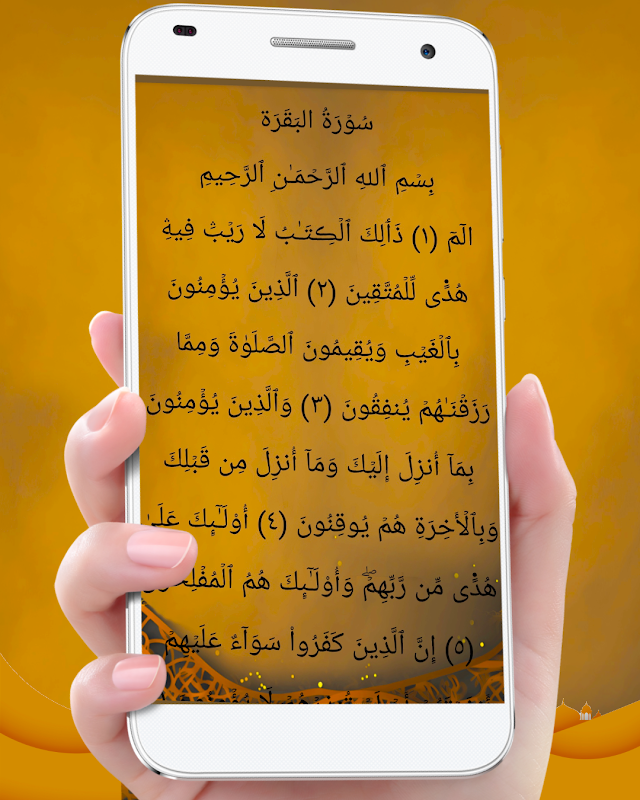 سُوۡرَةُ البَقَرَة
بِسۡمِ ٱللهِ ٱلرَّحۡمَـٰنِ ٱلرَّحِيمِ
الٓمٓ (١) ذَٲلِكَ ٱلۡڪِتَـٰبُ لَا رَيۡبَۛ فِيهِۛ
هُدً۬ى لِّلۡمُتَّقِينَ (٢) ٱلَّذِينَ يُؤۡمِنُونَ
بِٱلۡغَيۡبِ وَيُقِيمُونَ ٱلصَّلَوٰةَ وَمِمَّا
رَزَقۡنَـٰهُمۡ يُنفِقُونَ (٣) وَٱلَّذِينَ يُؤۡمِنُونَ
بِمَآ أُنزِلَ إِلَيۡكَ وَمَآ أُنزِلَ مِن قَبۡلِكَ
وَبِٱلۡأَخِرَةِ هُمۡ يُوقِنُونَ (٤) أُوْلَـٰٓٮِٕكَ عَلَىٰ
هُدً۬ى مِّن رَّبِّهِمۡ‌ۖ وَأُوْلَـٰٓٮِٕكَ هُمُ ٱلۡمُفۡلِحُونَ
(٥) إِنَّ ٱلَّذِينَ كَفَرُواْ سَوَآءٌ عَلَيۡهِمۡ